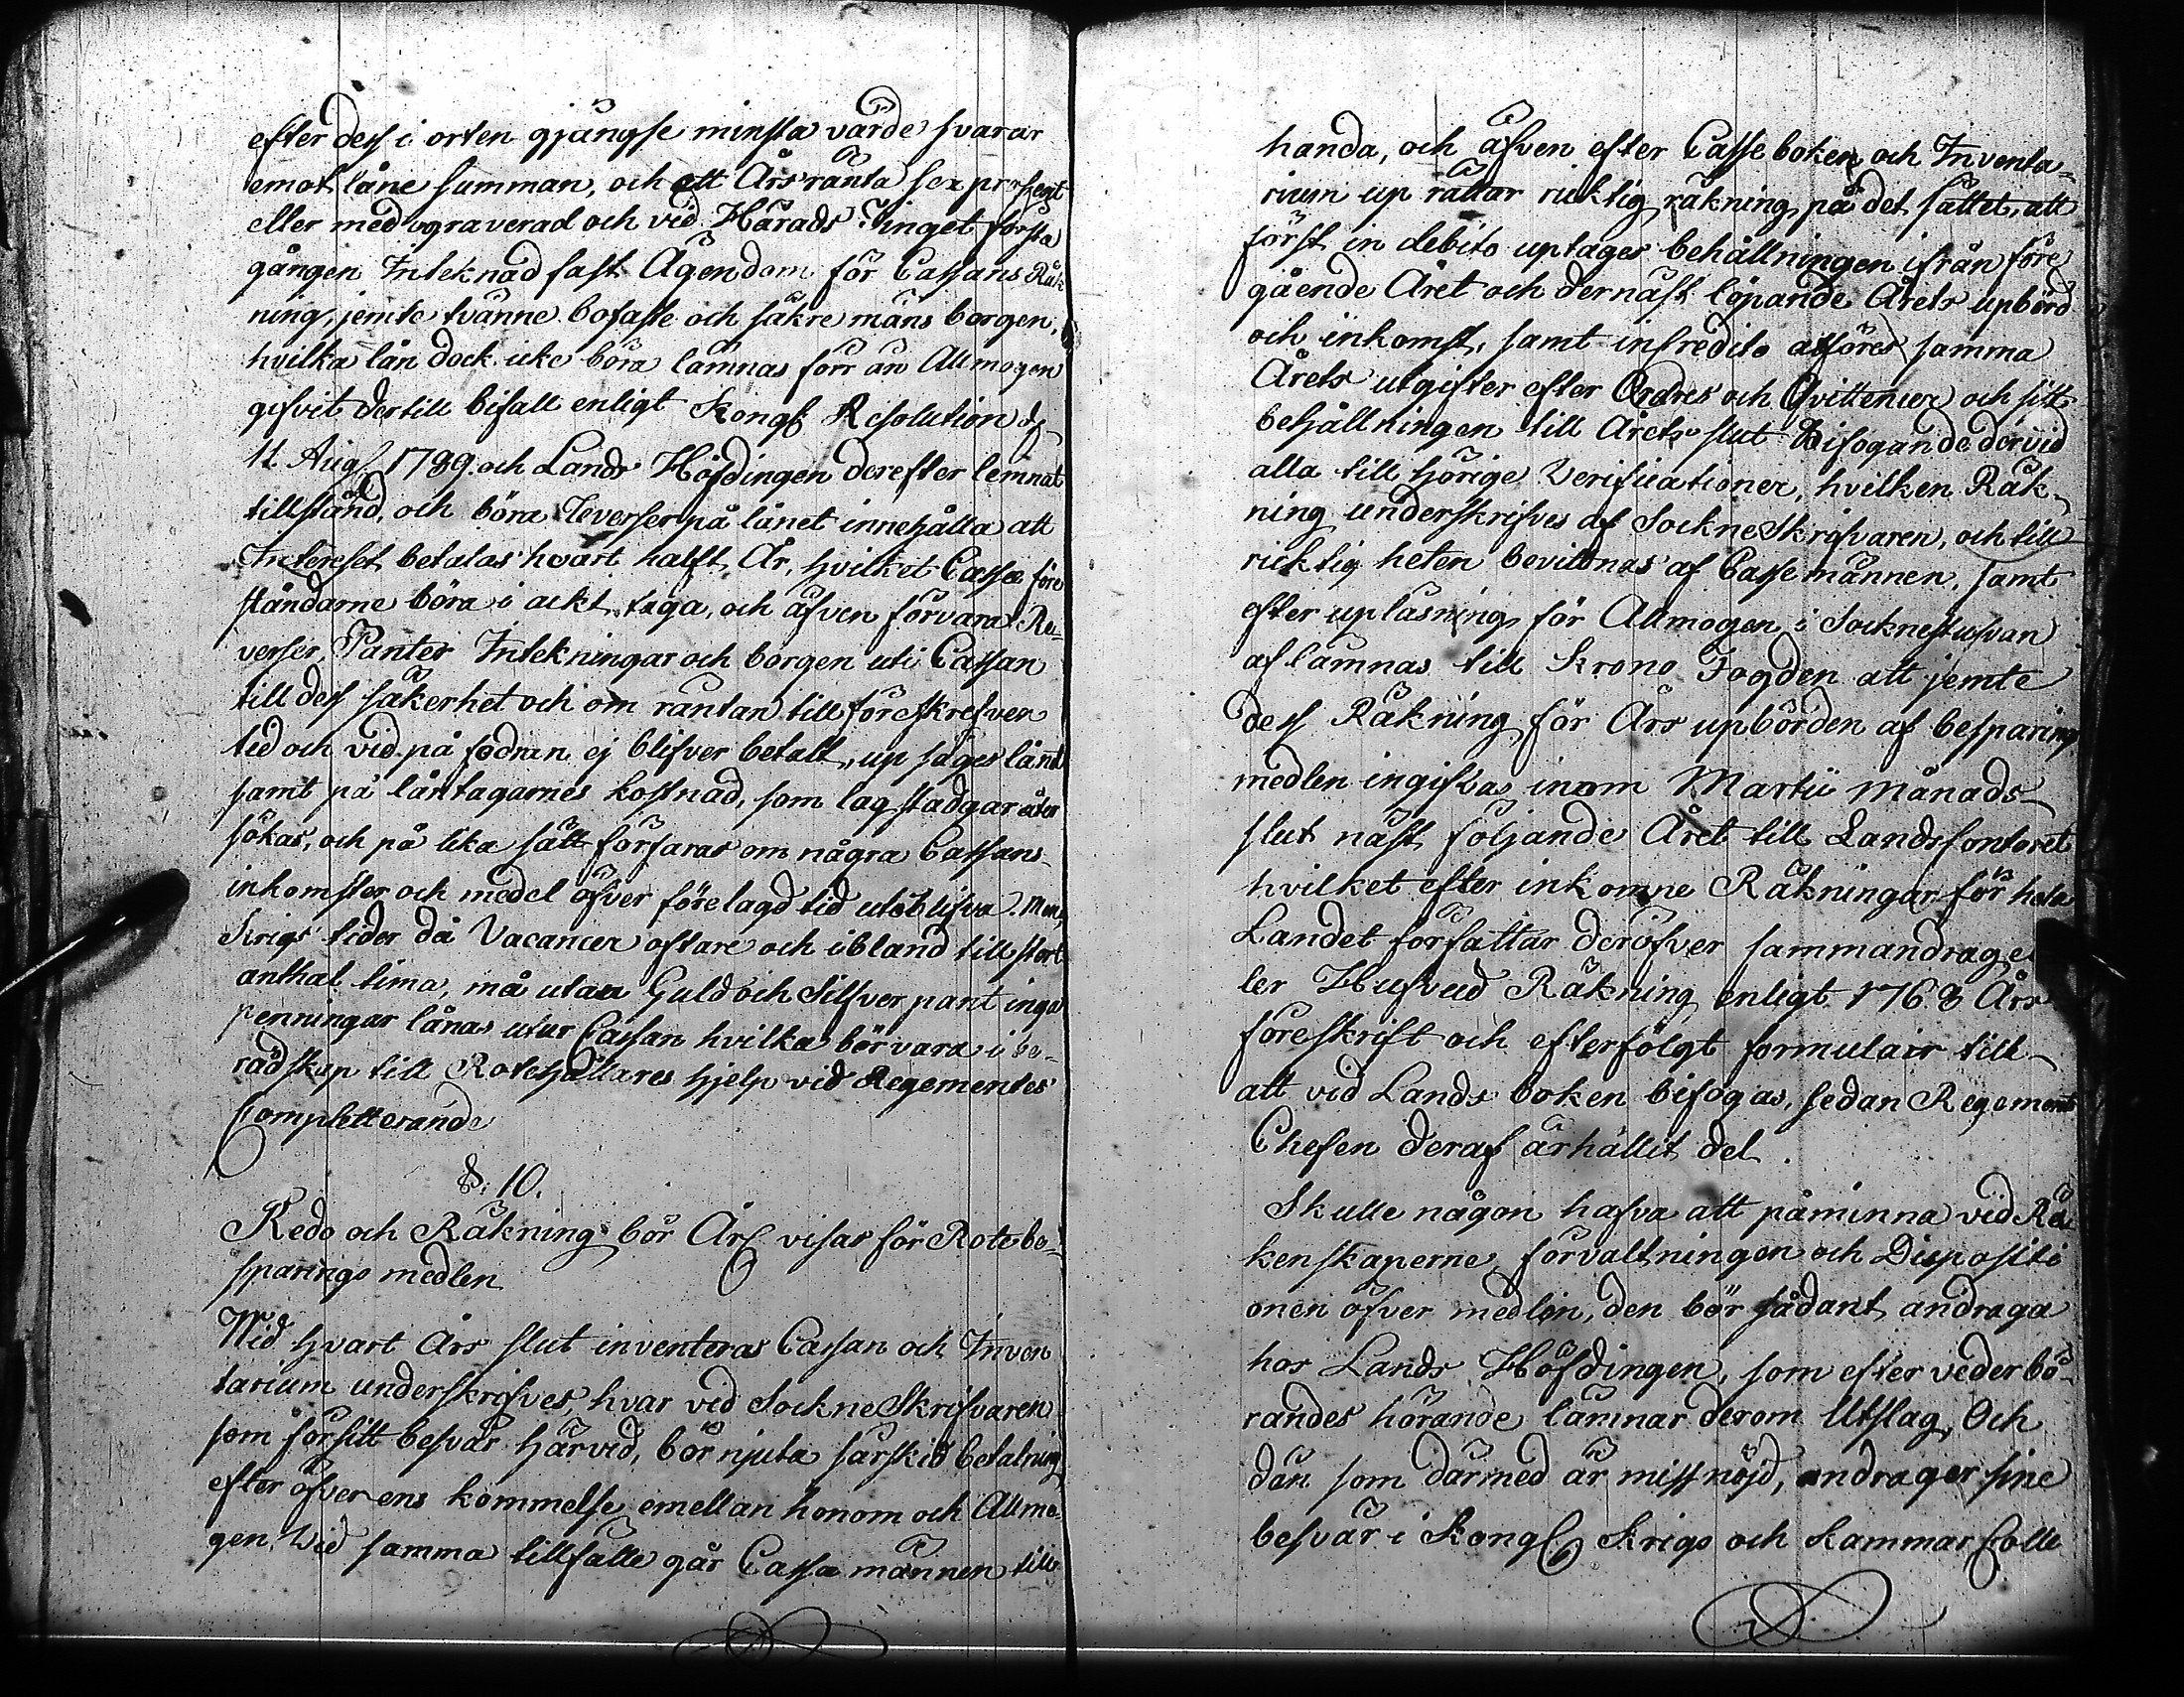 efter dess i orten gjängse minsta värde svarar
emot låne summan, och ett Års ränta sex prosent
eller med ograverad och vid Härads Tinget första
gången Inteknad fast Ägendom för Cassans Räk
ning, jemte tvänne bofaste och säkre mäns borgen,
hvilka lån dock icke böra lämnas förr än Allmogen
gifvit dertill bifall enligt Kongl Resolution d
11 Aug 1789 och Lands Höfdingen derefter lemnat
tillstånd, och böra Reverser på lånet innehålla att
Intereset betalas hvart halft År, hvilket Casse före
ståndarne böra i ackt taga, och äfven förvara Re-
verser, Panter Intekningar och borgen uti Cassan
till dess säkerhet och om räntan till föreskrefven
tid och vid på fodran ej blifver betalt, up säges lånet
samt på låntagarnes kostnad, som lag stadgar åter
sökas, och på lika sätt förfaras om några Cassans
inkomster och medel öfver förelagd tid uteblifva. Men
Krigs tider då Vacancer oftare och ibland till stort
anthal tima, må utan Guld och Silfver pant inga
penningar lånas utur Cassan hvilka bör vara i be-
rädskap till Rotehållares hjelp vid Regementes
Completterande
§. 10.
Redo och Räkning bör Årl visas för Rote be-
sparings medlen
Wid hvart Års slut inventeras Cassan och Inven
tarium underskrifves, hvar vid Sockne Skrifvaren
som för sitt besvär härvid, bör njuta särskild betalning
efter öfverens kommelse emellan honom och Allmo-
gen. Wid samma tillfälle går Cassa männen till
handa, och äfven efter Casse boken och Inventa-
rium up rättar ricktig räkning på det sättet, att
först in debito uptages behållningen ifrån före
gående Året och dernäst löpande Årets upbörd
och inkomst, samt in credito afföres samma
Årets utgifter efter Ordres och Qvittencer och sitt
behållningen till Årets slut bifogande dervid
alla till hörige Verificationer, hvilken Räk-
ning underskrifves af Sockne Skrifvaren, och till
ricktig heten bevittnas af Casse männen, samt
efter upläsning för Allmogen i Sockne stufvan
af lämnas till Krono Fogden att jemte
dess Räkning för Års upbörden af besparings
medlen ingifvas inom Martii Månads
slut näst följande Året till Landscontoret
hvilket efter inkomne Räkningar för hela
Landet författar deröfver sammandrag e
ler Hufvud Räkning enligt 1768 Års
föreskrift och efterfölgt formulair till
att vid Lands boken bifogas, sedan Regements
Chefen deraf ärhållit del.
Skulle någon hafva att påminna vid Rä
kenskaperne, förvaltningen och Dispositi
onen öfver medlen, den bör sådant andraga
hos Lands Höfdingen, som efter vederbö-
randes hörande lämnar derom Utslag, Och
den som därmed är missnöjd, andrager sine
besvär i Kongl Krigs och Kammar Colle